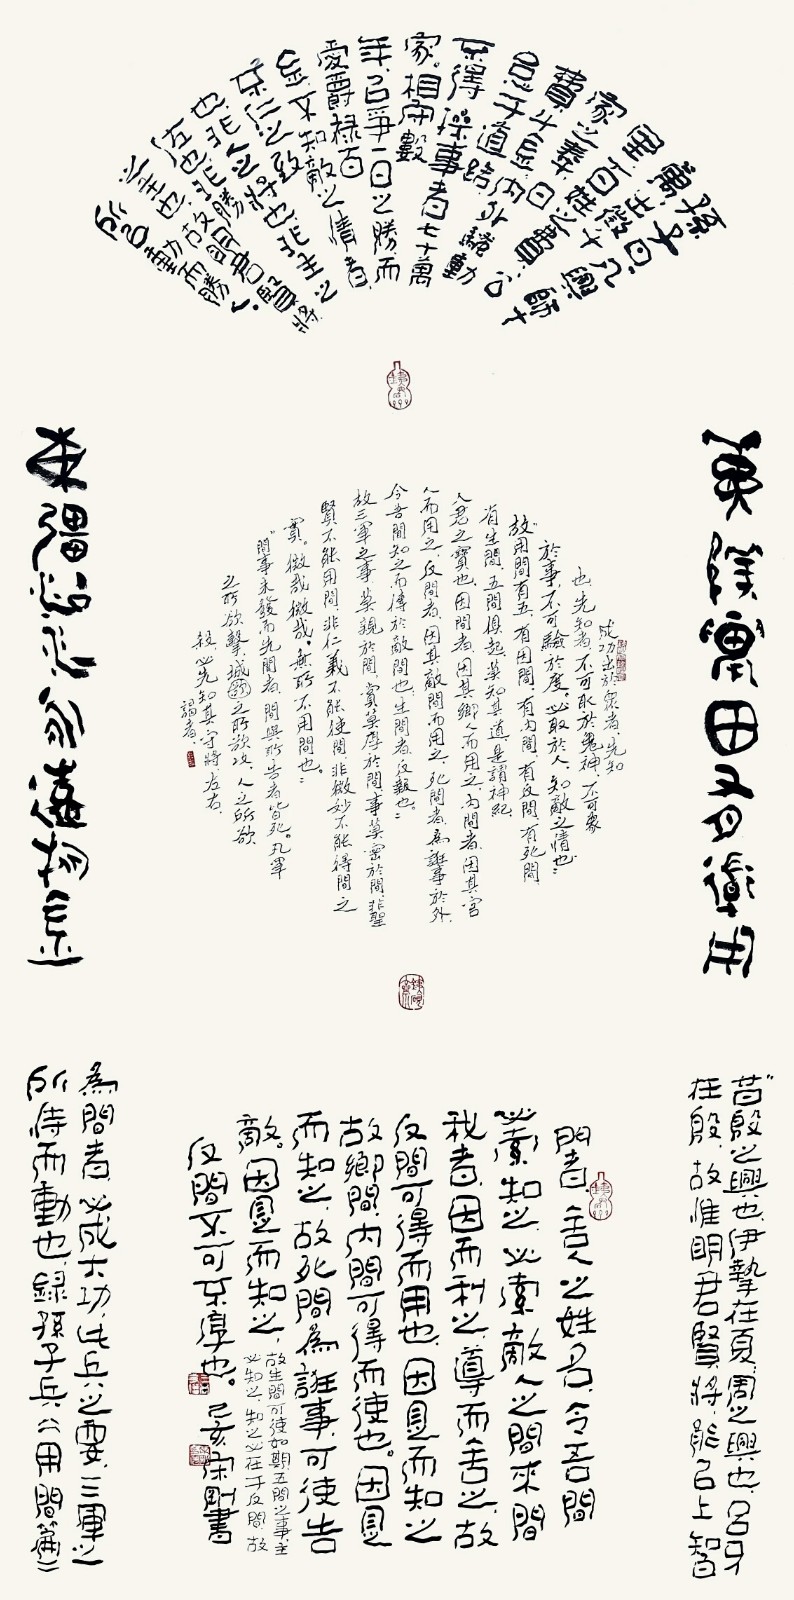 孫子曰凡興師十
萬出徵千
里百姓之費公
家之奉日
費千金内外騷動
怠于道路
不得操事者七十萬
家。相守數
年以爭一日之勝而
愛爵祿百
金不知敵之情者
不仁之致
也非人之將也非主之
佐也非勝
之主也故明君賢將
所以動而勝人
成功出於衆者、先知
也、先知者、不可取於鬼神、不可象
於事、不可驗於度、必取於人、知敵之情也
故用間有五、有因間、有内間、有反間、有死間
有生間、五間俱起、莫知其道、是謂神紀
人君之寶也、因間者、因其鄉人而用之、内間者、因其官
人而用之、反間者、因其敵間而用之、死間者、為誑事於外
令吾間知之、而傳於敵間也、生間者、反報也。
故三軍之事、莫親於間、賞莫厚於間、事莫密於間、非聖
賢不能用間、非仁義不能使間、非微妙不能得間之
實。微哉微哉。無所不用間也。
間事未發而先聞者、間與所告者皆死。凡軍
之所欲擊、城之所欲攻、人之所欲
殺、必先知其守將、左右、
謁者、
門者、舍人之姓名、令吾間
必索知之、必索敵人之間來間
我者、因而利之、導而舍之、故
反間可得而用也、因是而知之
故鄉間、内間可得而使也。因是
而知之、故死間為誑事、可使告
敵。因是而知之、
故生間可使如期、五間之事、主
必知之、知之必在于反間、故
反間不可不厚也。己亥宋剛書
昔殷之興也、伊摯在夏、周之興也、呂牙
在殷、故惟明君賢將、能以上智
為間者、必成大功、此兵之要、三軍之
所恃而動也、錄孫子兵法用間篇